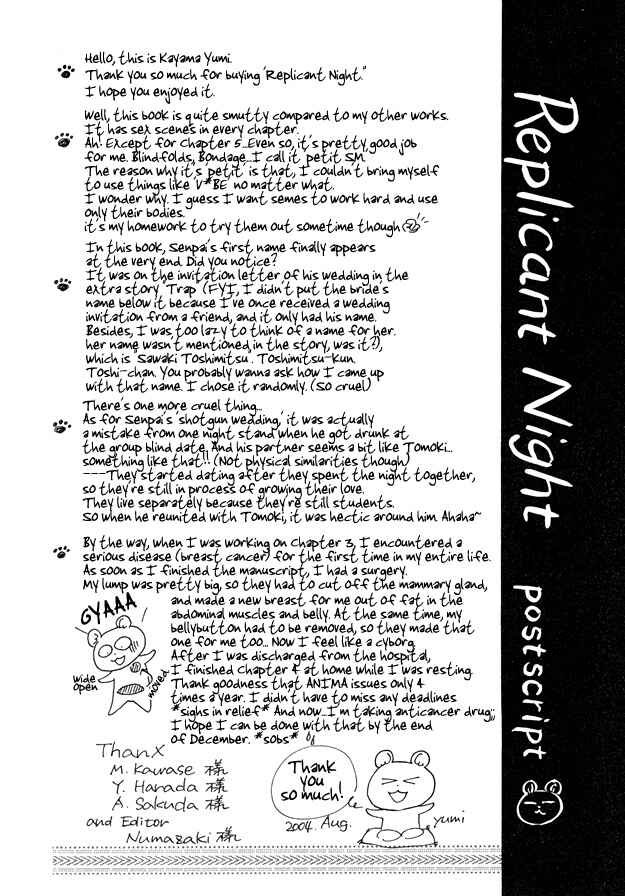 Replicant Night postscript
Hello, this is Kayama Yumi.
Thank you so much for buying "Replicant Night."
I hope you enjoyed it.
Well, this book is quite smutty compared to my other works.
It has sex scenes in every chapter.
Ah! Except for chapter 5...Even so, it's pretty good job
for me. Blind-folds, Bondage...I call it 'petit SM'.
The reason why it's 'petit' is that, I couldn't bring myself
to use things like 'V*BE' no matter what.
I wonder why. I guess I want semes to work hard and use
only their bodies.
it's my homework to try them out sometime though
In this book, Senpai's first name finally appears
at the very end. Did you notice?
It was on the invitation letter of his wedding in the
extra story 'Trap' (FYI, I didn't put the bride's
name below it because I've once received a wedding
invitation from a friend, and it only had his name.
Besides, I was too lazy to think of a name for her.
her name wasn't mentioned in the story, was it?),
which is 'Sawaki Toshimitsu'. Toshimitsu-kun.
Toshi-chan. You probably wanna ask how I came up
with that name. I chose it randomly. (so cruel)
There's one more cruel thing...
As for Senpai's 'shotgun wedding,' it was actually
a mistake from one night stand when he got drunk at
the group blind date. And his partner seems a bit like Tomoki...
something like that!! (Not physical similarities though)
----They started dating after they spent the night together,
so they're still in process of growing their love.
They live separately because they're still students.
So when he reunited with Tomoki, it was hectic around him. Ahaha~
By the way, when I was working on chapter 3, I encountered a
serious disease (breast cancer) for the first time in my entire life.
As soon as I finished the manuscript, I had a surgery.
My lump was pretty big, so they had to cut off the mammary gland,
and made a new breast for me out of fat in the
abdominal muscles and belly. At the same time, my
bellybutton had to be removed, so they made that
one for me too... Now I feel like a cyborg.
After I was discharged from the hospital,
I finished chapter 4 at home while I was resting.
Thank goodness that ANIMA issues only 4
times a year. I didn't have to miss any deadlines
*sighs in relief* And now...I'm taking anticancer drug;;
I hope I can be done with that by the end
of December. *sobs*
GYAAA
wide
open
moved
ThanX
M. Kawase 様
Y. Harada 様
A. Sakuda 様
and Editor
Numazaki 様
Thank
you
so much!
2004. Aug.
yumi